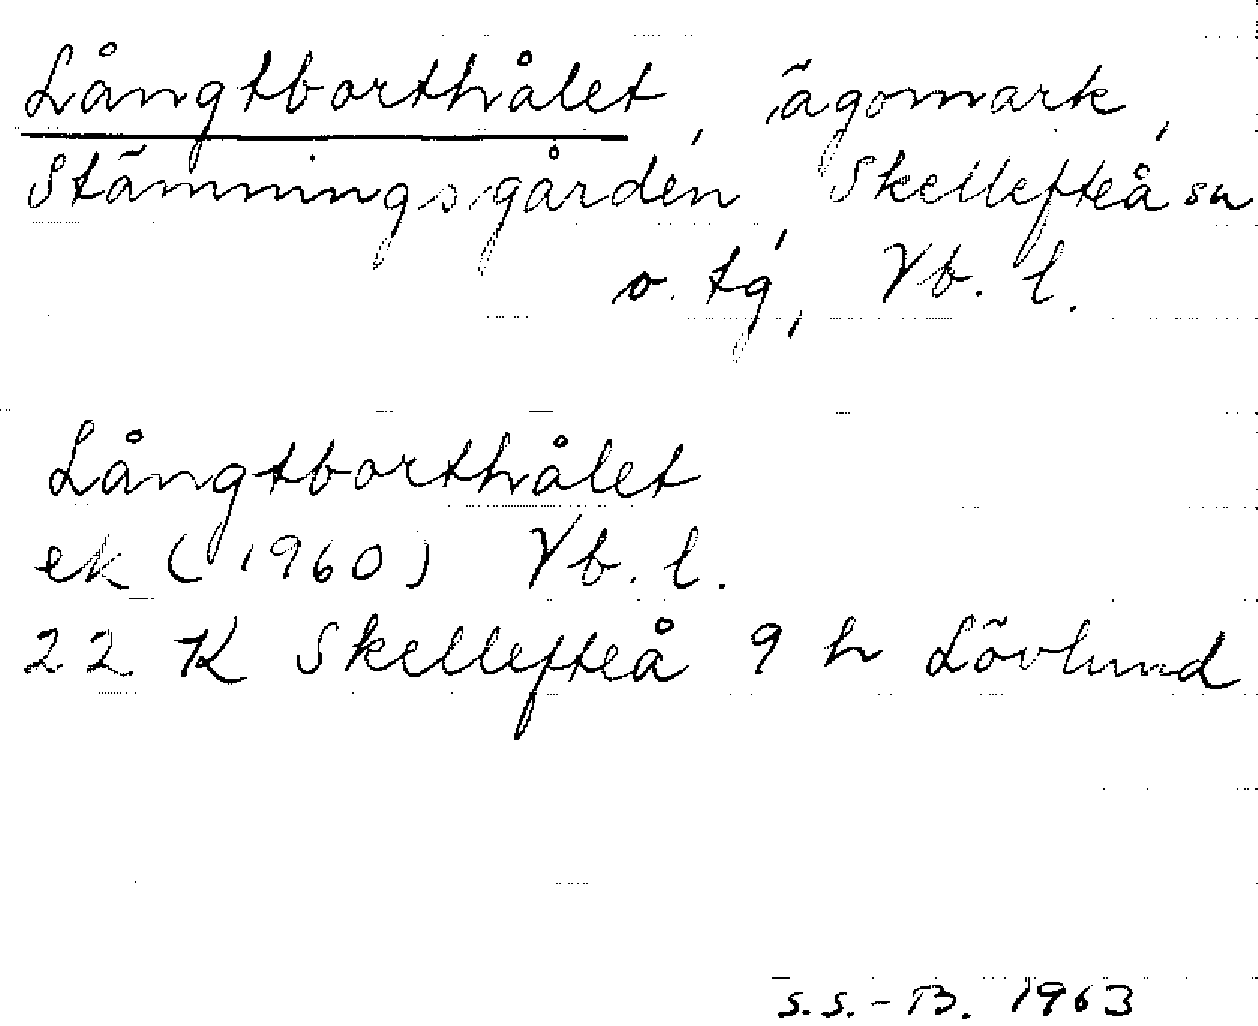 Långtborthålet, ägomark,
Stämningsgården, Skellefteå sn
o. tg, Vb. l.
Långtborthålet
ek (1960) Vb. l.
22 K Skellefteå 9 h Lövlund
S.S.-B. 1963